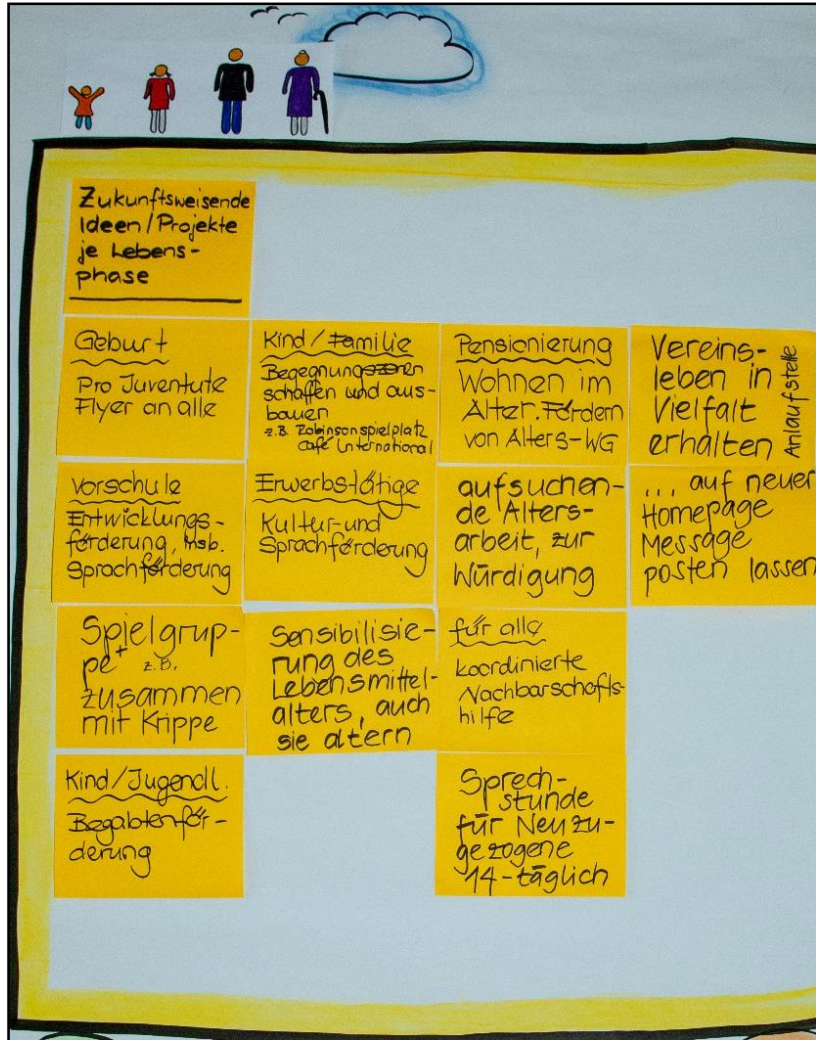 Zukunftsweisende
Ideen/Projekte
je Lebens-
phase
Geburt
Pro Juventute
Flyer an alle
Vorschule
Entwicklungs-
förderung, insb.
Sprachförderung
Spielgrup-
pe+ z.B.
zusammen
mit Krippe
Kind/Jugendl.
Begabtenför-
derung
Kind/Familie
Begegnungszonen
schaffen und aus-
bauen
z.B. Robinsonspielplatz
Café International
Erwerbstätige
Kultur-und
Sprachförderung
Sensibilisie-
rung des
Lebensmittel-
alters, auch
sie altern
Pensionierung
Wohnen im
Alter. Fördern
von Alters-WG
aufsuchen-
de Alters-
arbeit, zur
Würdigung
für alle
koordinierte
Nachbarschafts-
hilfe
Sprech-
stunde
für Neuzu-
gezogene
14-täglich
Vereins-
leben in
Vielfalt
erhalten
Anlaufstelle
... auf neuer
Homepage
Message
posten lassen